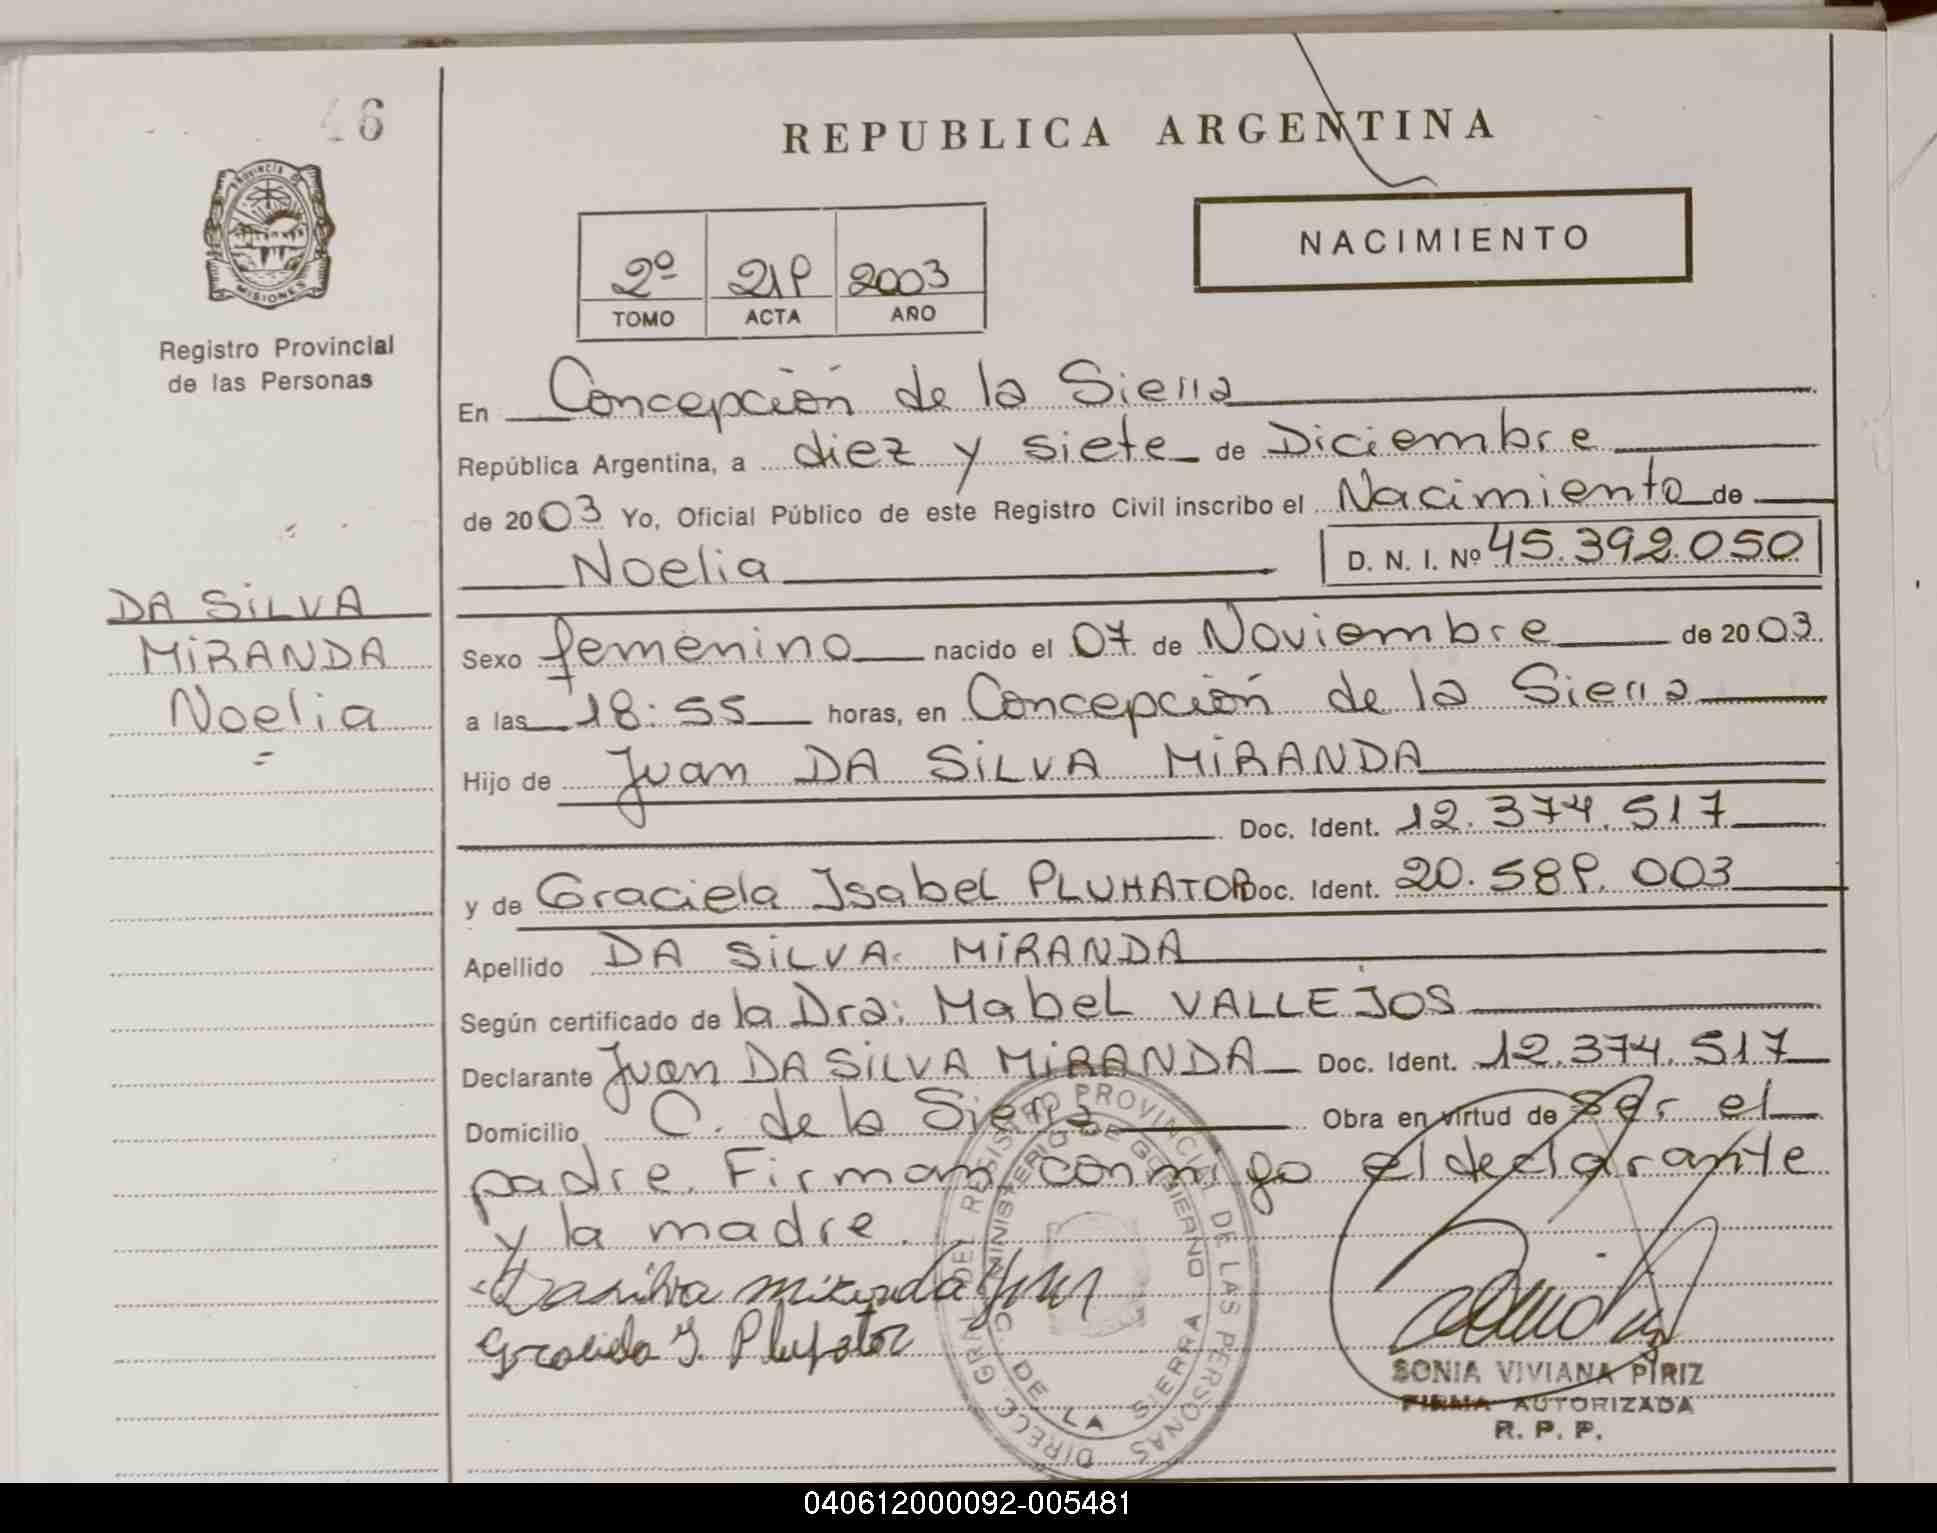 46
REPUBLICA ARGENTINA
PROVINCIA DE
MISIONES
Registro Provincial
de las Personas
NACIMIENTO
2º 219 2003
TOMO ACTA AÑO
En Concepción de la Sierra
República Argentina, a diez y siete de Diciembre
de 2003 Yo, Oficial Público de este Registro Civil inscribo el Nacimiento de
Noelia D. N. I. Nº 45.392.050
DA SILVA
MIRANDA
Noelia
Sexo femenino nacido el 07 de Noviembre de 2003
a las 18:55 horas, en Concepción de la Sierra
Hijo de Juan DA SILVA MIRANDA
Doc. Ident. 12.374.517
y de Graciela Isabel PLUHATOR Doc. Ident. 20.589.003
Apellido DA SILVA MIRANDA
Según certificado de la Dra: Mabel VALLEJOS
Declarante Juan DA SILVA MIRANDA Doc. Ident. 12.374.517
Domicilio C. de la Sierra Obra en virtud de ser el
padre. Firman conmigo el declarante
y la madre.
Dasilva miranda Juan
Graciela I. Pluhator
DIRECC. GRAL. DEL REGISTRO PROVINCIAL DE LAS PERSONAS
MINISTERIO DE GOBIERNO
C. DE LA SIERRA
SONIA VIVIANA PIRIZ
FIRMA AUTORIZADA
R. P. P.
040612000092-005481